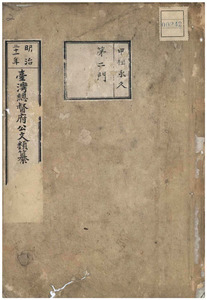 甲種永久
第二門
明治
三十一年
臺灣總督府公文類纂